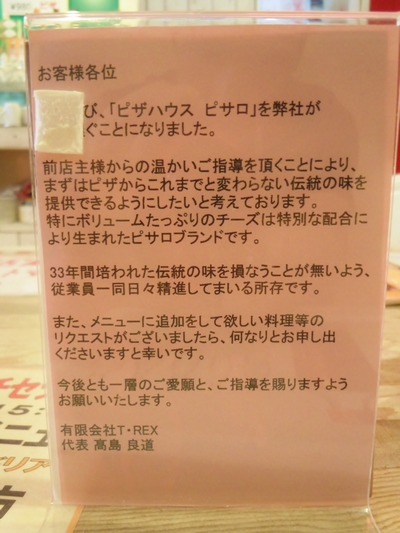 お客様各位
び、「ピザハウス ピサロ」を弊社が
ぐことになりました。
前店主様からの温かいご指導を頂くことにより、
まずはピザからこれまでと変わらない伝統の味を
提供できるようにしたいと考えております。
特にボリュームたっぷりのチーズは特別な配合に
より生まれたピサロブランドです。
33年間培われた伝統の味を損なうことが無いよう、
従業員一同日々精進してまいる所存です。
また、メニューに追加をして欲しい料理等の
リクエストがございましたら、何なりとお申し出
くださいますと幸いです。
今後とも一層のご愛願と、ご指導を賜りますよう
お願いいたします。
有限会社T・REX
代表 髙島 良道